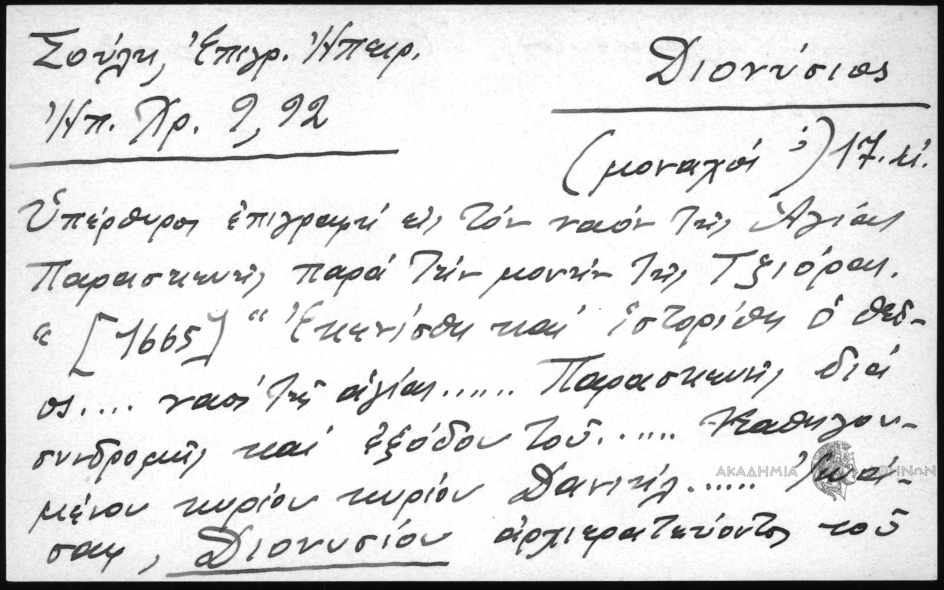 Σούλη, Ἐπιγρ. Ἠπειρ.
Ἠπ. Χρ. 9, 92
Διονύσιος
(μοναχός ;) 17. αἰ.
Ὑπέρθυρος ἐπιγραφή εἰς τόν ναόν τῆς Ἁγίας
Παρασκευῆς παρά τήν μονήν τῆς Τζιόρας.
" [1665] " Ἐκενίσθη καί ἱστορίθη ὁ θεῖ-
ος.... ναός τῆς ἁγίας...... Παρασκευῆς διά
συνδρομῆς καί ἐξόδου τοῦ...... Καθηγου-
ΑΚΑΔΗΜΙΑ ΑΘΗΝΩΝ
μένου κυρίου κυρίου Δανιήλ......
σαφ, Διονυσίου ἀρχιερατεύοντος τοῦ